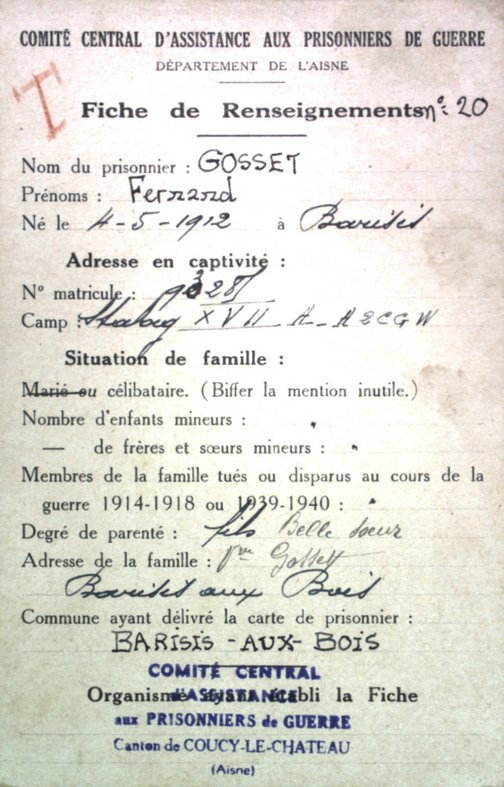 COMITÉ CENTRAL D'ASSISTANCE AUX PRISONNIERS DE GUERRE
DÉPARTEMENT DE L'AISNE
T
Fiche de Renseignements n° 20
Nom du prisonnier : GOSSET
Prénoms : Fernand
Né le 4-5-1912 à Barisis
Adresse en captivité :
N° matricule :
Camp : Stalag XVII A - A2CGW
Situation de famille :
Marié ou célibataire. (Biffer la mention inutile.)
Nombre d'enfants mineurs : "
— de frères et sœurs mineurs : "
Membres de la famille tués ou disparus au cours de la
guerre 1914-1918 ou 1939-1940 : "
Degré de parenté : fils Belle sœur
Adresse de la famille : Vve Gosset
Barisis aux Bois
Commune ayant délivré la carte de prisonnier :
BARISIS-AUX-BOIS
COMITÉ CENTRAL
Organisme ayant établi la Fiche
d'ASSISTANCE
aux PRISONNIERS de GUERRE
Canton de COUCY-LE-CHATEAU
(Aisne)